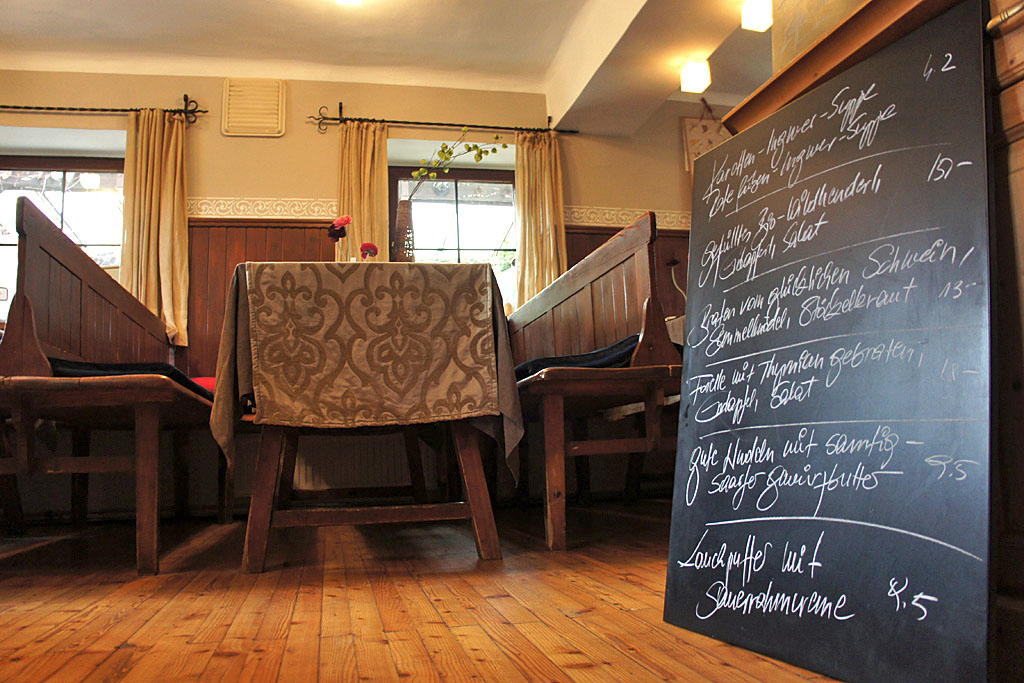 Karotten-Ingwer-Suppe 4.2
Rote Rüben-Ingwer-Suppe
gefülltes Bio-Wildhenderl, 15,-
Erdäpfel, Salat
Braten vom glücklichen Schwein,
Semmelknödel, Stöcklkraut 13-
Forelle mit Thymian gebraten,
Erdäpfel, Salat
gute Nudeln mit samtig- 9,5
scharfer Gewürzbutter
Lauchpuffer mit
Sauerrahmcreme 8.5